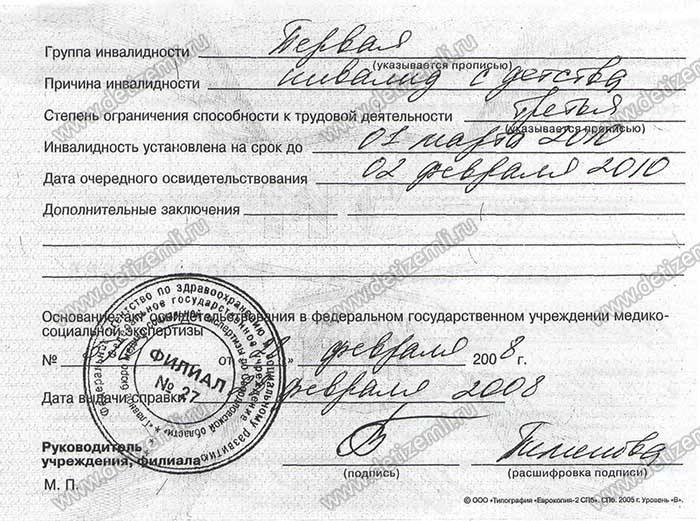 Группа инвалидности Первая
(указывается прописью)
Причина инвалидности инвалид с детства
Степень ограничения способности к трудовой деятельности третья
(указывается прописью)
Инвалидность установлена на срок до 01 марта 2010
Дата очередного освидетельствования 02 февраля 2010
Дополнительные заключения
Основание: акт освидетельствования в федеральном государственном учреждении медико-
социальной экспертизы
№ от " февраля 2008 г.
Дата выдачи справки февраля 2008
Руководитель
учреждения, филиала
(подпись) (расшифровка подписи)
М. П.
© ООО «Типография «Еврокопия-2 СПб». СПб. 2005 г. Уровень «В».
Федеральное агентство по здравоохранению и социальному развитию
Федеральное государственное учреждение
«Главное бюро медико-социальной экспертизы по Свердловской области»
ФИЛИАЛ
№ 27
www.detizemli.ru